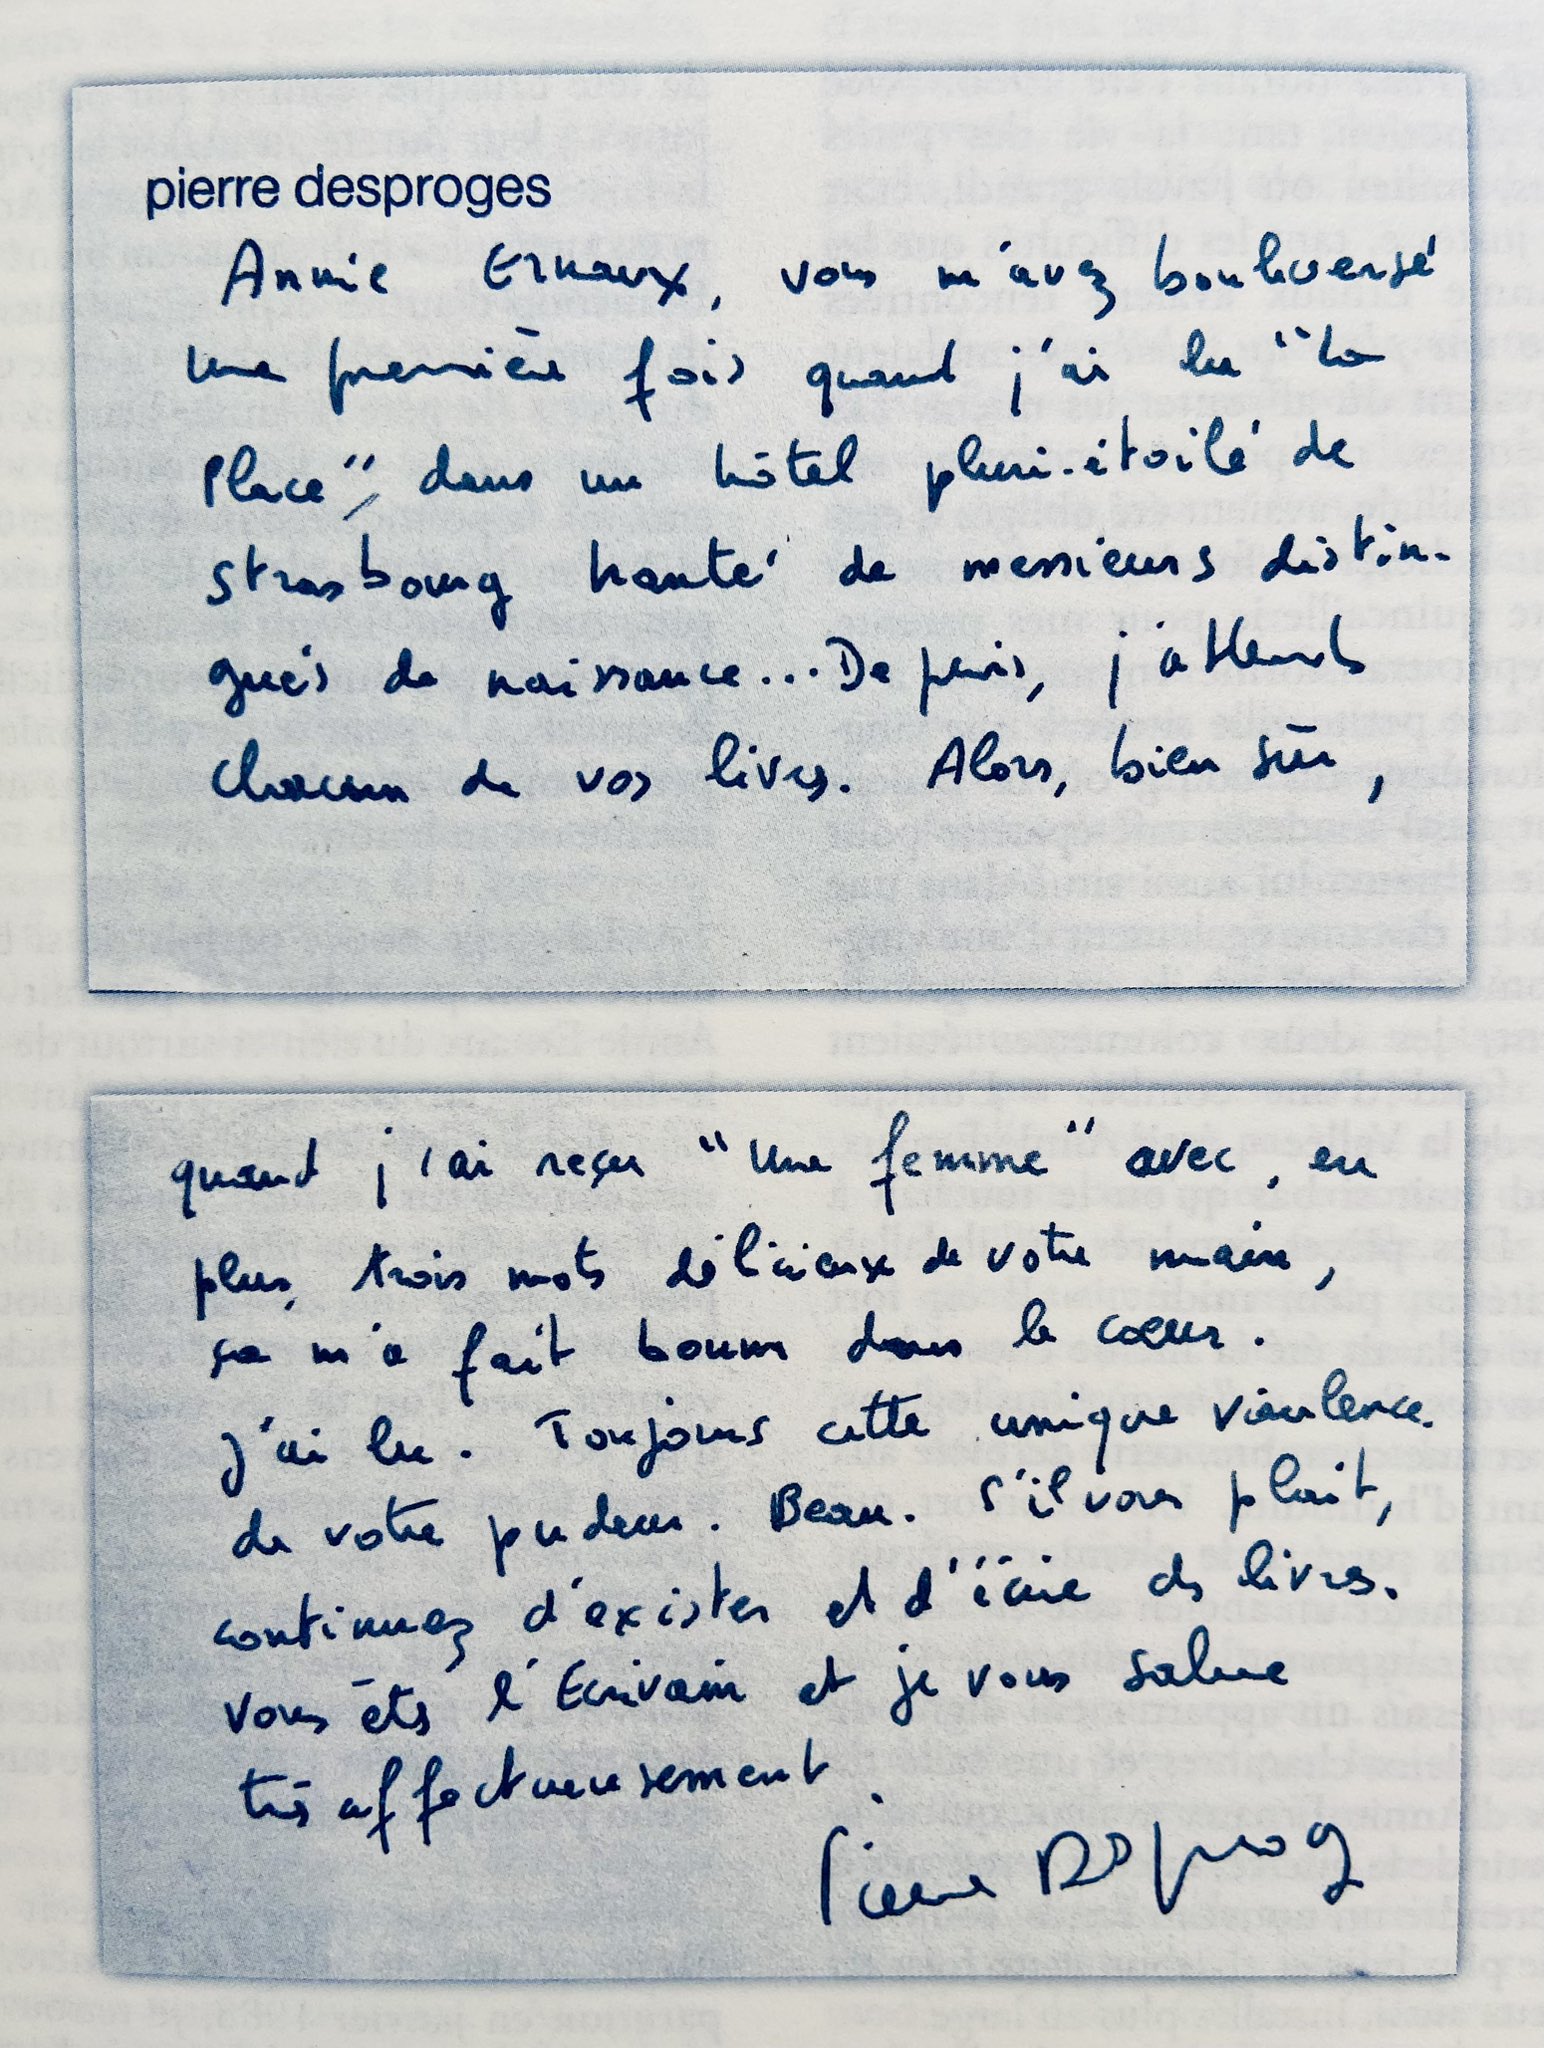 pierre desproges
Annie Ernaux, vous m'avez bouleversé
une première fois quand j'ai lu "La
Place", dans un hôtel pluri-étoilé de
Strasbourg hanté de messieurs distin-
gués de naissance... Depuis, j'attends
chacun de vos livres. Alors, bien sûr,
quand j'ai reçu "Une femme" avec, en
plus, trois mots délicieux de votre main,
ça m'a fait boum dans le cœur.
J'ai lu. Toujours cette unique violence
de votre pudeur. Beau. S'il vous plait,
continuez d'exister et d'écrire des livres.
Vous êtes l'Ecrivain et je vous salue
très affectueusement.
Pierre Desproges